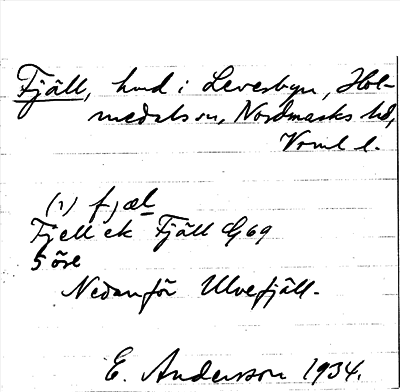 Fjäll, hmd i Leverbyn, Hol-
medals sn, Nordmarks hd,
Vrml l.
(1) fjæl
Fjell ek Fjäll G69
5 öre
Nedanför Ulvefjäll.
E. Anderson 1934.